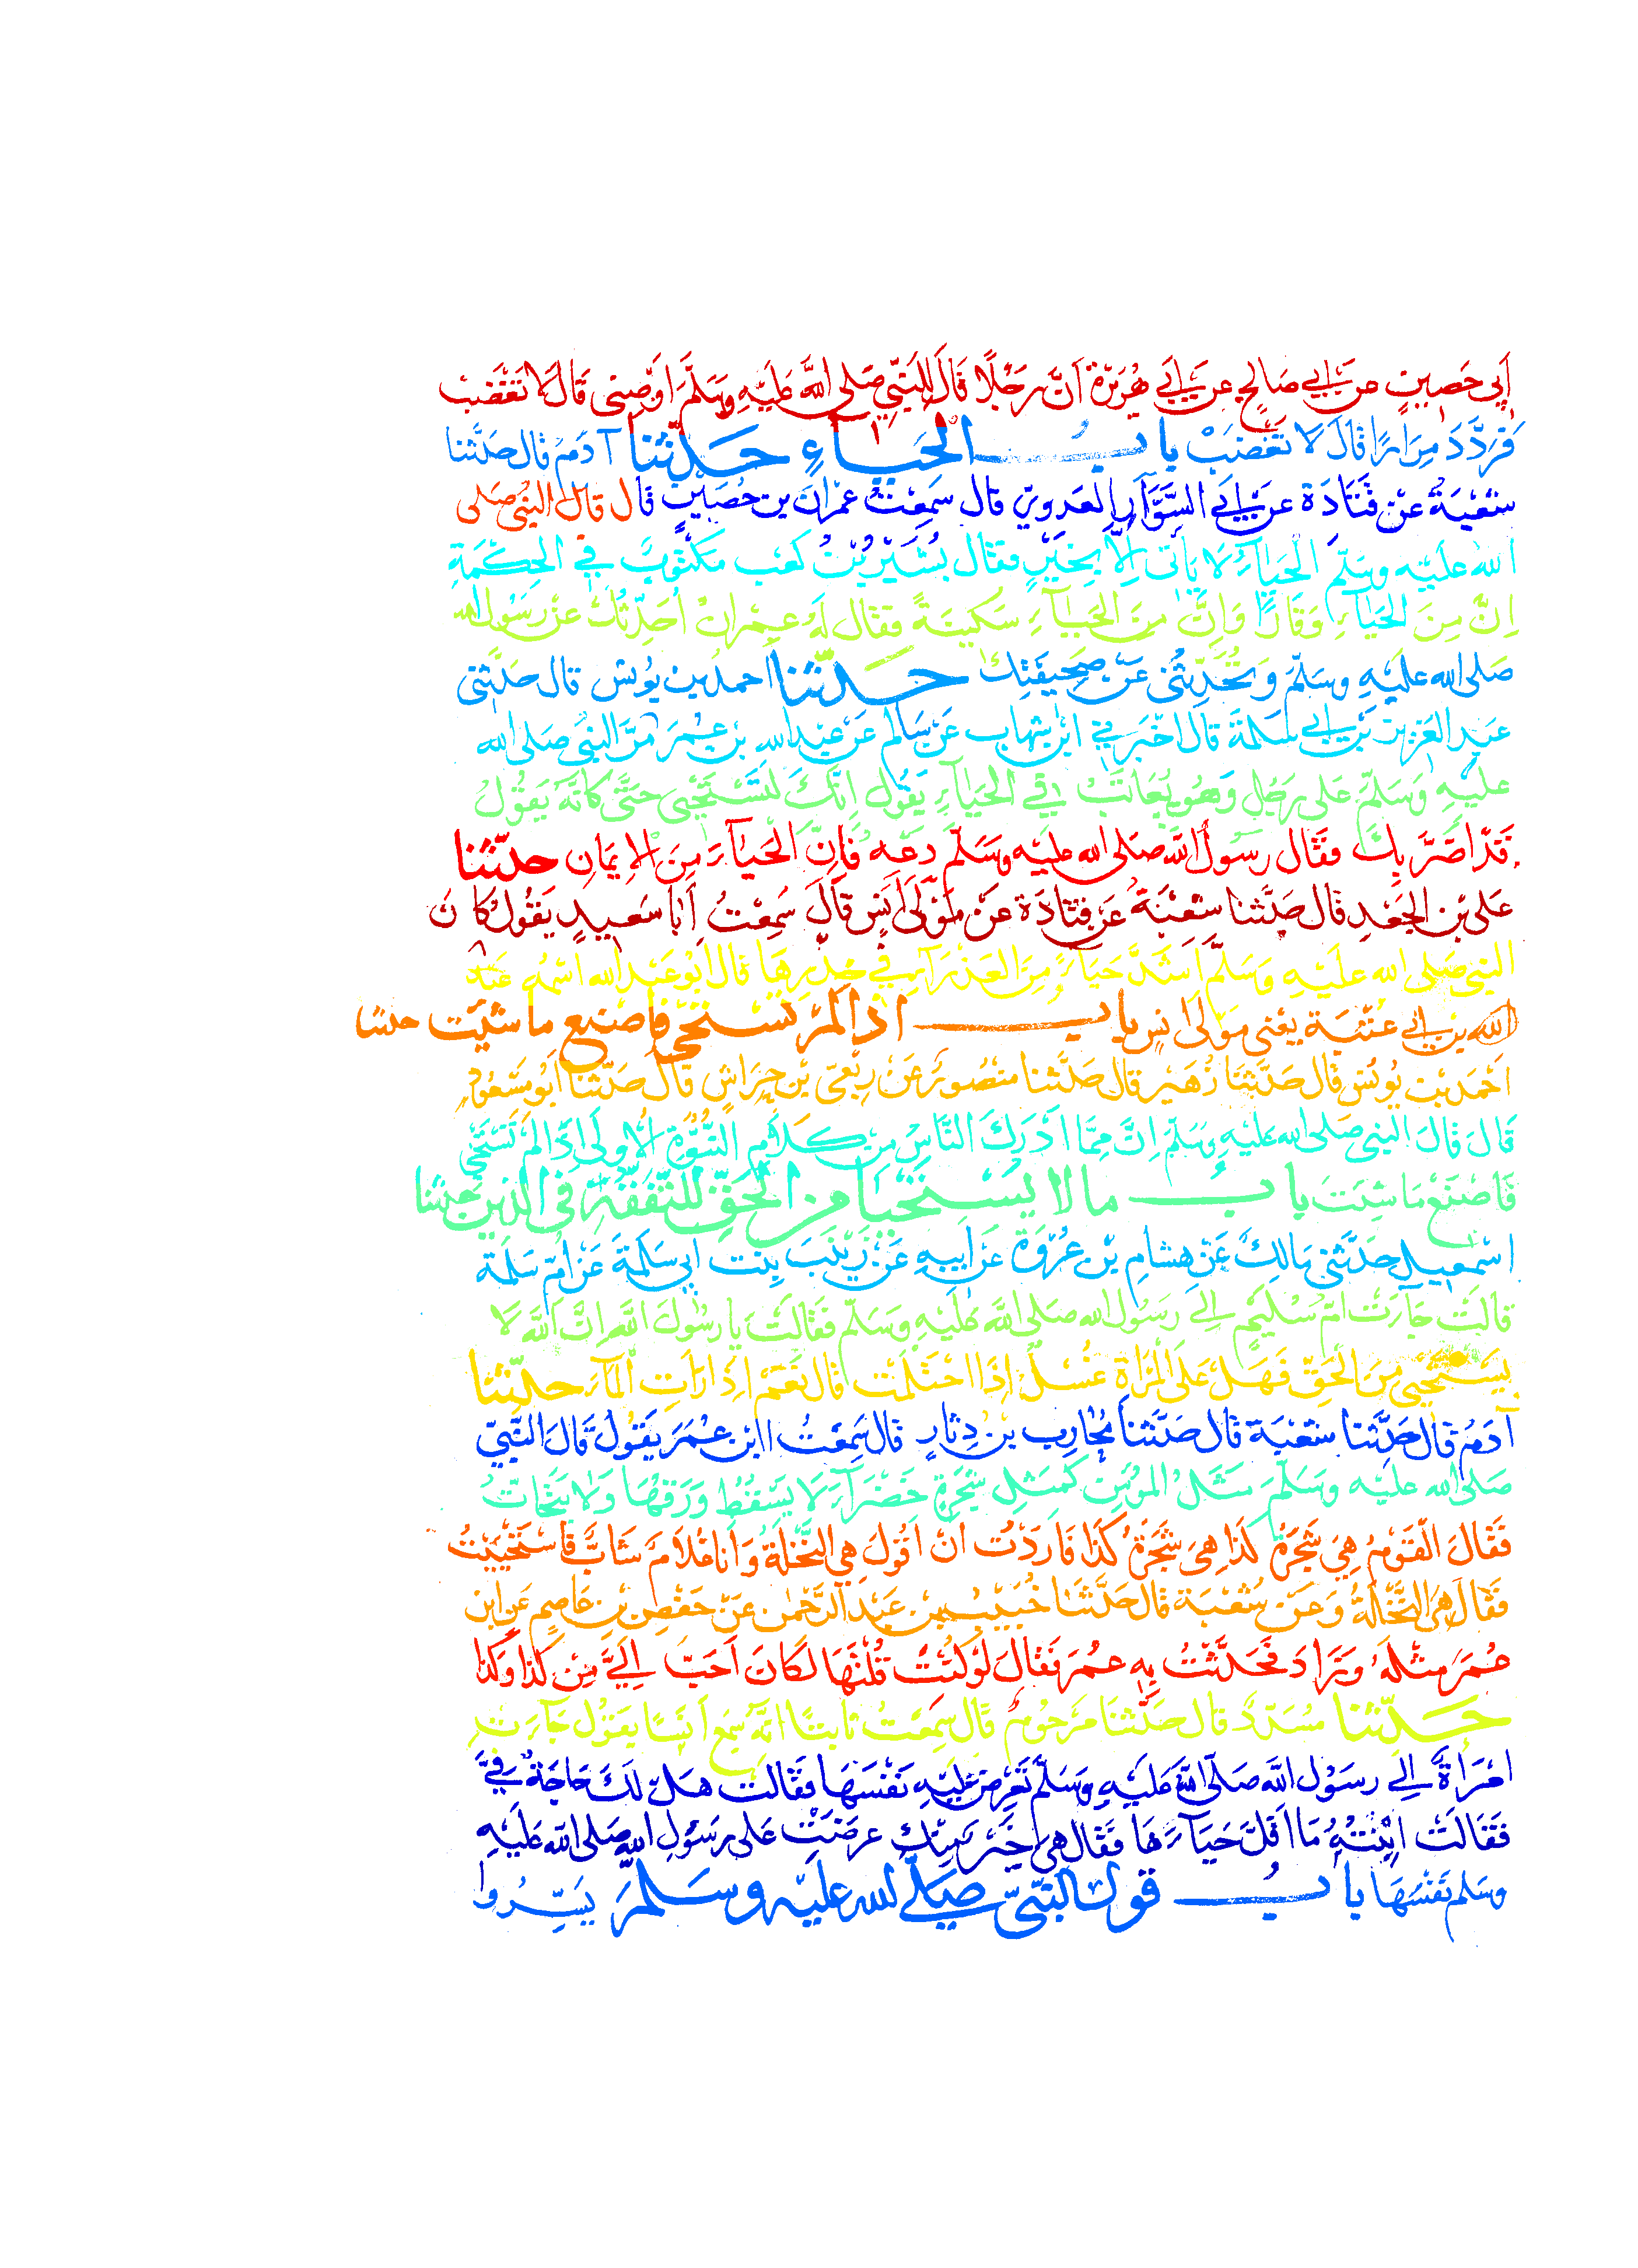 أَبِي حَصِينٍ عن أبي صَالِحٍ عن أبي هُرَيْرَةَ أَنَّ رَجُلًا قَالَ لِلنَّبِيِّ صَلى اللهُ عَلَيْهِ وَسَلَّمَ اَوْصِنِى قَالَ لَا تَغْضَبْ
فَرَدَّدَ مِرَارًا قَالَ لَا تَغْضَبْ باب الحَيَاءِ حَدَّثَنَا آدَمُ قال حَدَّثنا
شُعْبَةُ عَنْ قَتَادَةَ عن أبي السَّوَّارِ العَدوِيّ قال سَمِعْتُ عِمْرانَ بن حُصَيْنٍ قَال قال النبيُّ صَلى
الله عَلَيْهِ وسَلّم الحَيَاءُ لا يَاتى اِلّا بِخَيْرٍ فقال بُشَيْرُ بْنُ كَعْب مَكْتُوبٌ في الحِكْمَةِ
اِنَّ مِنَ الحَيَاءِ وَقَارًا وَاِنَّ مِنَ الحَيَاءِ سَكِينَةً فقال لَهُ عِمْرانُ اُحَدِّثُكَ عَنْ رَسُولِ الله
صَلى الله عَلَيْهِ وسَلّم وَتُحَدِّثُنى عَنْ صَحِيفَتِكَ حَدّثنا احمدُ بن يُونُسَ قال حَدَّثَنى
عَبْدُ العَزِيزِ بْنُ ابي سَلَمَةَ قال اَخْبَرَني ابْنُ شِهَابٍ عَنْ سَالم عَنْ عَبْدِ اللهِ بْنِ عُمَرَ مَرَّ النبيُّ صَلى الله
عليهِ وَسَلّم عَلى رَجُلٍ وَهُو يُعَاتَبُ في الحَيَاءِ يَقُول اِنَّكَ لَتَسْتَحْيِى حَتَّى كَاَنَّهُ يَقُولُ
قَدْ اَضَرَّ بِكَ فقَال رَسولُ اللهِ صَلى الله عليه وسَلّم دَعْهُ فَاِنَّ الحَيَاءَ مِنَ الاِيمَانِ حدّثنا
عَلى بْن الجَعْدِ قال حَدَّثنا شُعْبَةُ عَنْ قتَادَةَ عَنْ مَوْلَى اَنَسٍ قَالَ سَمِعْتُ اَبَا سَعيدٍ يَقُولُ كَانَ
النبي صَلى الله عليْهِ وَسَلّم اَشَدَّ حَيَاءً مِنَ العَذْرَاءِ في خِدْرِهَا قال ابُو عَبْدِ الله اسْمُهُ عَبْدُ
الله بن ابي عُتْبَةَ يعني مَوْلى اَنسٍ باب اذا لَمْ تَسْتَحْيِ فاصْنَعْ ما شِئْتَ حدثنا
اَحْمَدُ بْن يُونُسَ قال حَدَّثَنَا زُهَيْر قال حَدَّثنا منصُورٌ عَنْ رِبْعِىّ بْنِ حِرَاشٍ قَال حَدَّثَنا اَبُو مَسْعُودٍ
قال قَالَ النبي صَلى الله عليْهِ وسَلّم اِنَّ مِمَّا اَدْرَكَ النَّاسُ مِنْ كَلَامِ النُّبُوَّةِ الاُولَى اِذَا لَمْ تَسْتَحْيِ
فَاصْنَعْ مَا شِئْتَ باب ما لا يُسْتَحْيَا مِنَ الحَقّ لِلتَّفَقُّهِ فى الدّينِ حدثنا
اسْمعِيل حَدَّثَنى مَالِكٌ عَنْ هِشامِ بْن عُرْوَةَ عَنْ اَبِيهِ عَنْ زَيْنَبَ بِنْت ابي سَلَمَةَ عَنْ اُمّ سَلَمَة
قَالَتْ جَاءَتْ امُّ سُلَيْمٍ الى رَسُولِ الله صَلى اللهُ عَلَيْهِ وسَلّم فَقَالَتْ يا رَسُولَ اللهِ اِنَّ اللهَ لَا
يَسْتَحْيِى مِنَ الحَقّ فَهَلْ عَلَى المَرْاَةِ غُسْلٌ اِذَا احْتَلَمَتْ قال نَعَمْ اِذَا رَاَتِ المَاءَ حدّثنا
آدَمُ قال حَدَّثنا شُعْبَةُ قال حَدَّثَنا مُحَارِب بْن دِثَارٍ قال سَمِعْتُ ابْن عُمَرَ يَقُولُ قَالَ النَّبِيّ
صَلى الله عليْه وسَلّمَ مَثَلُ المُؤْمِنِ كَمَثَلِ شَجَرَةٍ خَضْرَاءَ لَا يَسْقُطُ وَرَقُهَا وَلا يَتَحَاتُّ
فَقَالَ القَوْمُ هِيَ شَجَرَةُ كَذَا هِىَ شَجَرَةُ كَذَا فَارَدْتُ اَنْ اَقُولَ هِيَ النَّخْلَةُ وَاَنَا غُلاَمٌ شَابٌّ فَاسْتَحْيَيْتُ
فَقَالَ هِىَ النَّخْلَةُ وَعَنْ شُعْبَةَ قال حَدَّثَنَا خُبَيْبُ بْن عَبْدِ الرَّحْمٰن عَنْ حَفْصِ بْنِ عَاصِمٍ عَنِ ابْنِ
عُمَرَ مِثْلَهُ وَزَادَ فَحَدَّثْتُ بِهِ عُمَرَ فَقَالَ لَوْ كُنْتَ قُلْتَهَا لَكَانَ اَحَبَّ اِلَيَّ مِنْ كَذَا وَكَذَا
حَدّثنا مُسَدّدٌ قال حَدَّثَنَا مَرْحُومٌ قَال سَمِعْتُ ثَابِتًا اَنَّهُ سَمِعَ اَنَسًا يَقُولُ جَاءَتِ
امْرَاَةٌ الى رَسُول اللهِ صَلّى اللهُ عَلَيْهِ وَسَلّمَ تَعْرِضُ عَلَيْهِ نَفْسَهَا فَقَالَت هَلْ لَكَ حَاجَةٌ فيَّ
فَقَالَتْ ابْنَتُهُ مَا اَقَلَّ حَيَاءَهَا فَقَال هِىَ خَيْرٌ مِنْكِ عَرَضَتْ عَلى رَسُولِ اللهِ صَلى اللهُ عَلَيْهِ
وسَلم نَفْسَهَا بابُ قول النّبيّ صَلى الله عليه وسَلمَ يَسِّرُوا